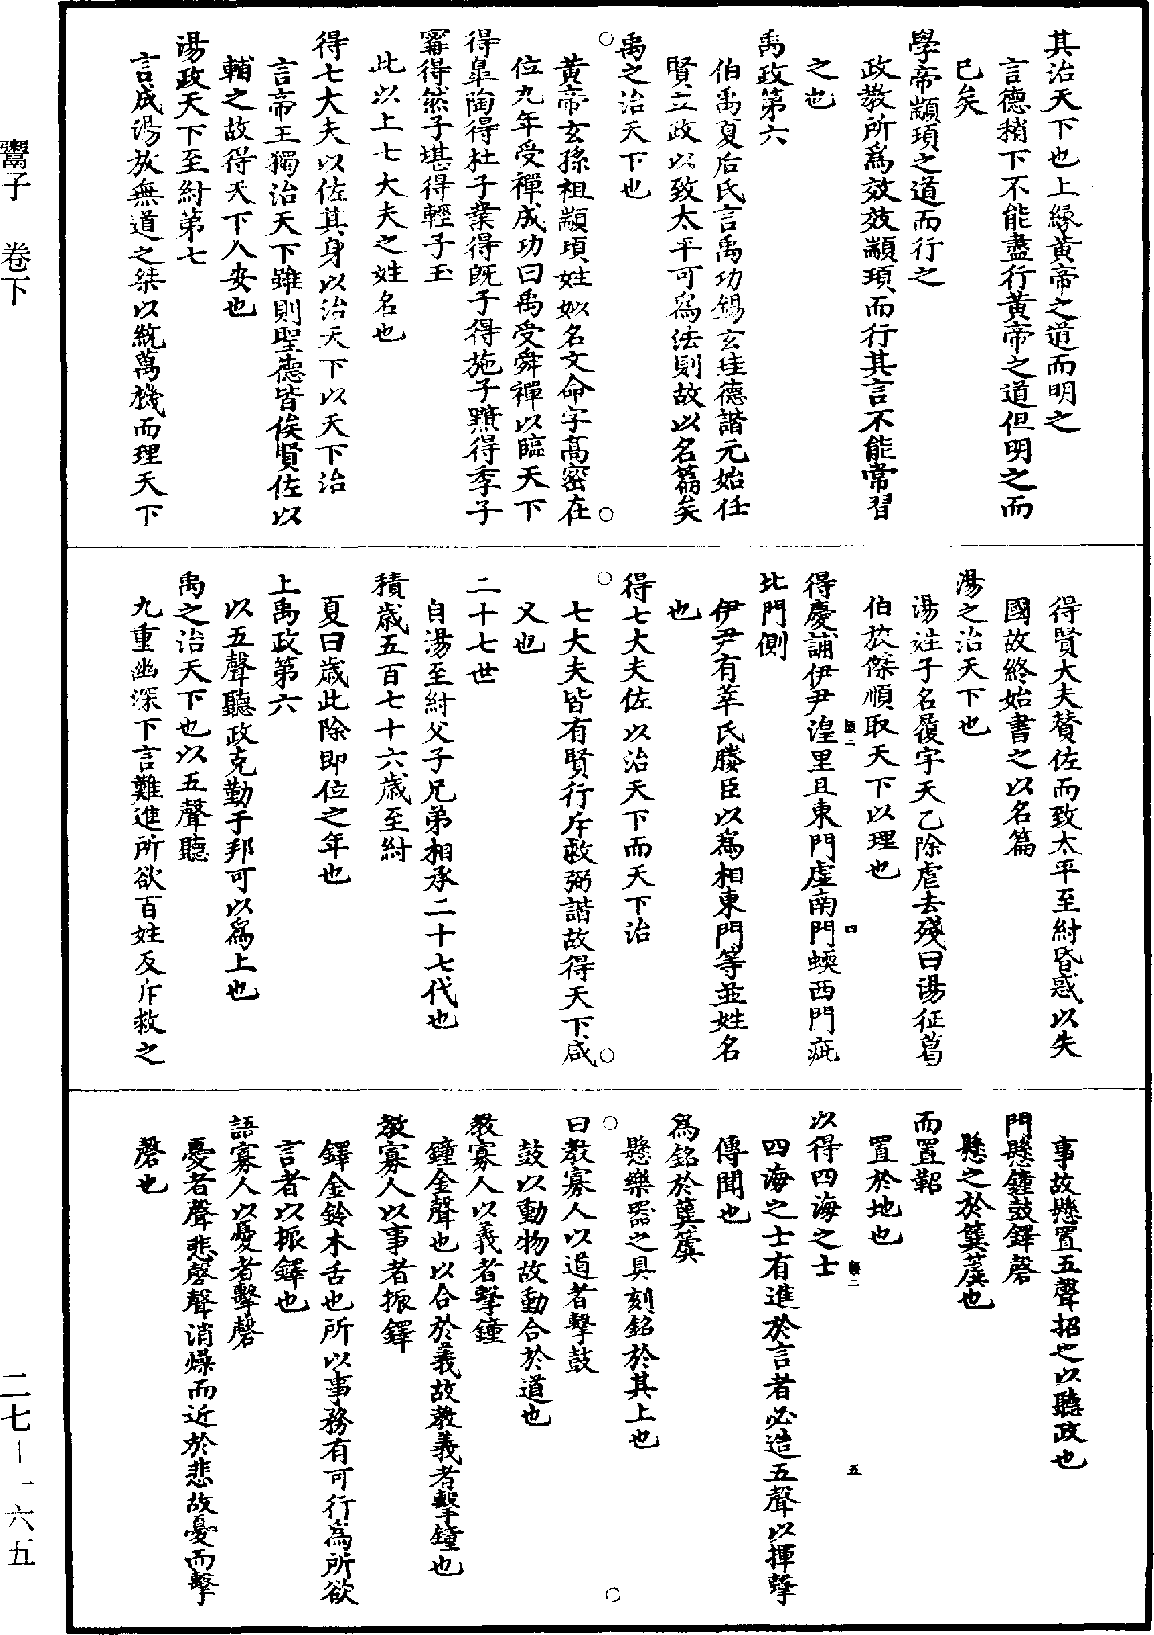 其治天下也上緣黃帝之道而明之
言德稍下不能盡行黃帝之道但明之而
已矣
學帝顓頊之道而行之
政教所為效效顓頊而行其言不能常習
之也
禹政第六
伯禹夏后氏言禹功錫玄珪德諧元始任
賢立政以致太平可為法則故以名篇矣
禹之治天下也
黃帝玄孫祖顓頊姓姒名文命字高密在
位九年受禪成功曰禹受舜禪以臨天下
得皐陶得杜子業得旣子得施子黯得季子
甯得然子堪得輕子玉
此以上七大夫之姓名也
得七大夫以佐其身以治天下以天下治
言帝王獨治天下雖則聖德皆俟賢佐以
輔之故得天下人安也
湯政天下至紂第七
言成湯放無道之桀以統萬機而理天下
得賢大夫贊佐而致太平至紂昏惑以失
國故終始書之以名篇
湯之治天下也
湯姓子名履字天乙除虐去殘曰湯征葛
伯放傑順取天下以理也
得慶誧伊尹湟里且東門虛南門蝡西門疵
北門側
伊尹有莘氏媵臣以為相東門等並姓名
也
得七大夫佐以治天下而天下治
七大夫皆有賢行斥救弼諧故得天下咸
乂也
二十七世
自湯至紂父子兄弟相承二十七代也
積歲五百七十六歲至紂
夏曰歲此除即位之年也
上禹政第六
以五聲聽政克勤于邦可以為上也
禹之治天下也以五聲聽
九重幽深下言難進所欲百姓反斥救之
事故懸置五聲招之以聽政也
門懸鐘鼓鐸磬
懸之於簨簴也
而置鞀
置於地也
以得四海之士
四海之士有進於言者必造五聲以揮擊
傳聞也
為銘於簨簴
懸樂器之具刻銘於其上也
曰教寡人以道者擊鼓
鼓以動物故動合於道也
教寡人以義者擊鐘
鐘金聲也以合於義故教義者擊鐘也
教寡人以事者振鐸
鐸金鈴木舌也所以事務有可行為所欲
言者以振鐸也
語寡人以憂者擊磬
憂者聲悲磬聲消燥而近於悲故憂而擊
磬也
鬻子 卷下
二七－一六五